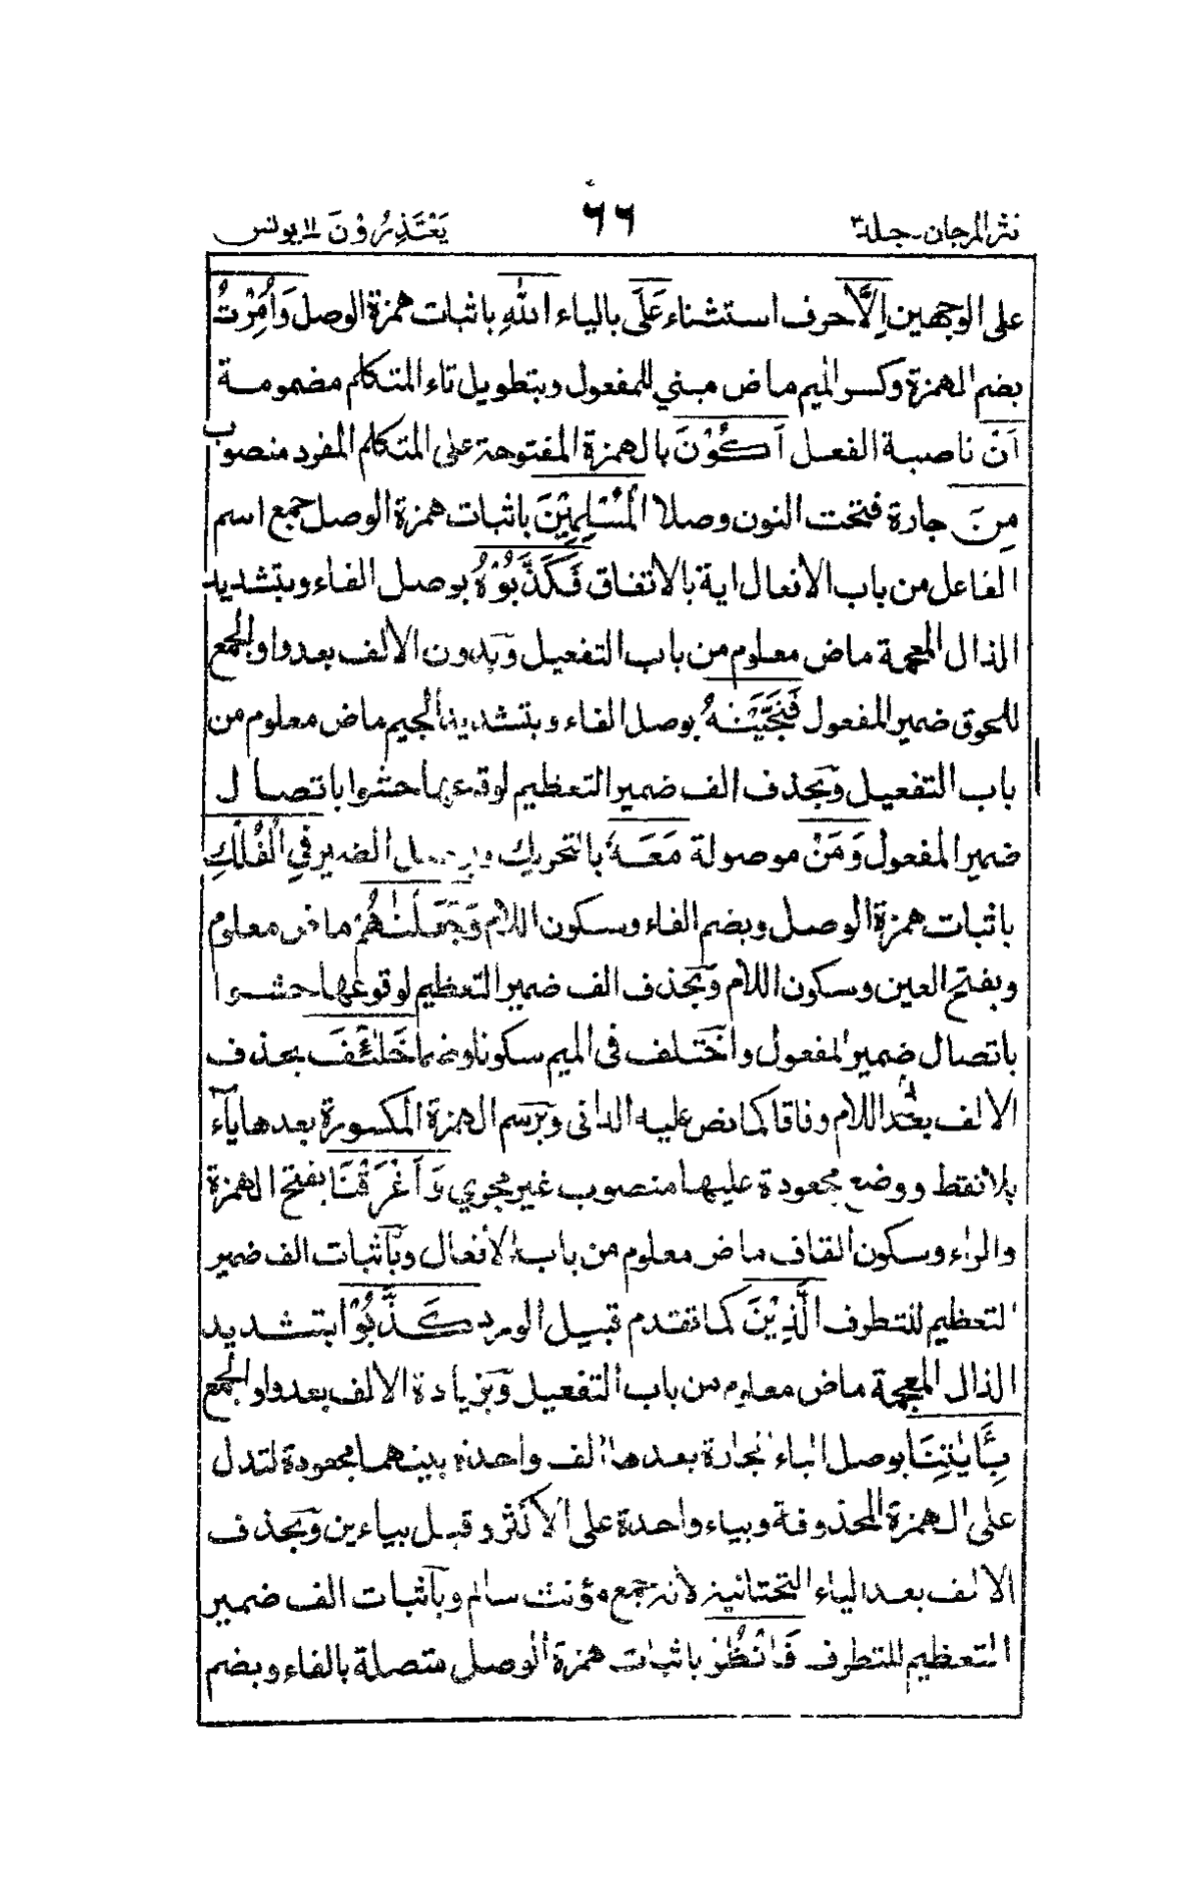 نثر المرجان۔جلد۳
۶۶
يَعْتَذِرُوْنَ ۱۱ يونس
على الوجهين اِلَّا حرف استثناء عَلَى بالياء اللّٰهِ باثبات همزة الوصل وَاُمِرْتُ
بضم الهمزة وكسر الميم ماض مبني للمفعول وبتطويل تاء المتكلم مضمومة
اَنْ ناصبة الفعل اَكُوْنَ بالهمزة المفتوحة على المتكلم المفرد منصوب
مِنَ جارة فتحت النون وصلا الْمُسْلِمِيْنَ باثبات همزة الوصل جمع اسم
الفاعل من باب الافعال اية بالاتفاق فَكَذَّبُوْهُ بوصل الفاء وبتشديد
الذال المعجمة ماض معلوم من باب التفعيل وبدون الالف بعد واو الجمع
للحوق ضمير المفعول فَنَجَّيْنٰهُ بوصل الفاء وبتشديد الجيم ماض معلوم من
باب التفعيل وبحذف الف ضمير التعظيم لوقوعها حشوا باتصال
ضمير المفعول وَمَنْ موصولة مَعَهٗ بالتحريك الضمير فِي الْفُلْكِ
باثبات همزة الوصل وبضم الفاء وسكون اللام وَجَعَلْنٰهُمْ ماض معلوم
وبفتح العين وسكون اللام وبحذف الف ضمير التعظيم لوقوعها حشوا
باتصال ضمير المفعول واختلف فى الميم سكونا وضما خَلٰٓئِفَ بحذف
الالف بعد اللام وفاقا كما نص عليه الدانى وبرسم الهمزة المكسورة بعدها ياء
بلا نقط ووضع مجعودة عليها منصوب غير مجرى وَاَغْرَقْنَا بفتح الهمزة
والراء وسكون القاف ماض معلوم من باب الافعال وباثبات الف ضمير
التعظيم للتطرف الَّذِيْنَ كما تقدم قبيل الورد كَذَّبُوْا بتشديد
الذال المعجمة ماض معلوم من باب التفعيل وبزيادة الالف بعد واو الجمع
بِـَٔايٰتِنَا بوصل الباء الجارة بعدها الف واحدة بينهما مجعودة لتدل
على الهمزة المحذوفة وبياء واحدة على الاكثر وقيل بياءين وبحذف
الالف بعد الياء التحتانية لانه جمع مؤنث سالم وباثبات الف ضمير
التعظيم للتطرف فَانْظُرْ باثبات همزة الوصل متصلة بالفاء وبضم